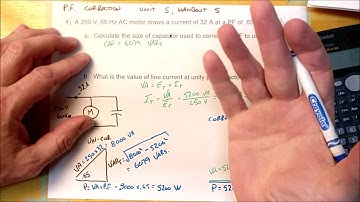 P.F. CORRECTION UNIT 5, HANDOUT 5
4) A 250 V, 60 Hz AC motor draws a current of 32 A at a PF of .65
a. Calculate the size of capacitor used to corre
CAP = 6079 VARS
b. What is the value of line current at unity p
VA = ET × IT
IT = VA / ET = 5200 VA / 250 V
32A
250V
60Hz
M
UN-COR
VA = 250×32 = 8000 VA
.65
VARS = √8000² - 5200²
= 6079 VARS
P = VA×PF = 8000 × .65 = 5200 W
CORR
VA=52
P = 52
Crayola